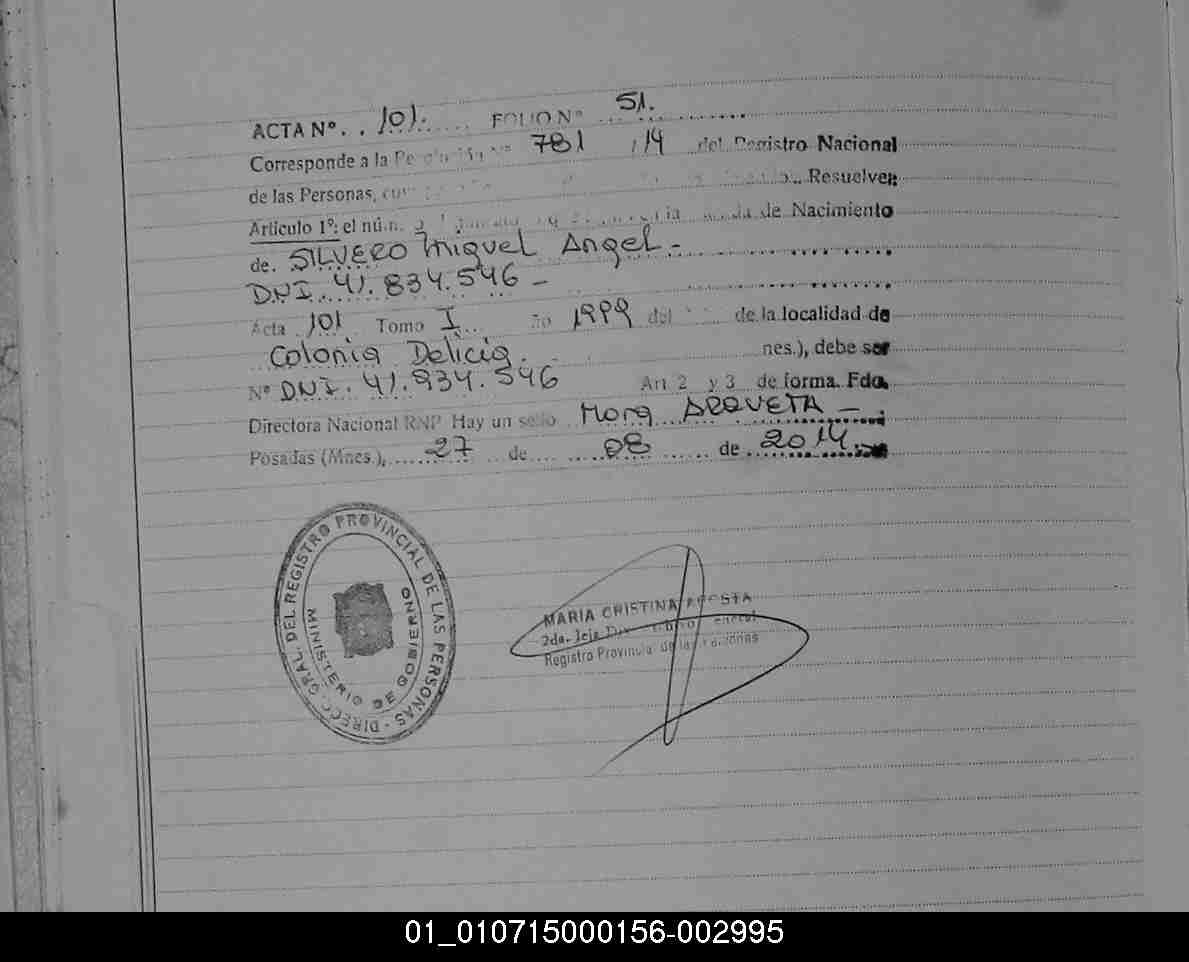 ACTA Nº. . 101. FOLIO Nº 51.
Corresponde a la Nº 781 /14 del Registro Nacional
de las Personas, Resuelve:
Artículo 1º: el de Nacimiento
de. SILVERO Miguel Angel -
DNI. 41.834.546 -
Acta 101 Tomo I 1999 del de la localidad de
Colonia Delicia.
nes.), debe ser
Nº DNI. 41.934.546 Art 2 y 3 de forma. Fdo.
Directora Nacional RNP Hay un sello Mora ARQUETA -
Posadas (Mnes.), 27 de 08 de 2014.
DIRECC. GRAL. DEL REGISTRO PROVINCIAL DE LAS PERSONAS -
MINISTERIO DE GOBIERNO
MARIA CRISTINA ACOSTA
2da. Jefa
Registro Provincial de las Personas
01_010715000156-002995